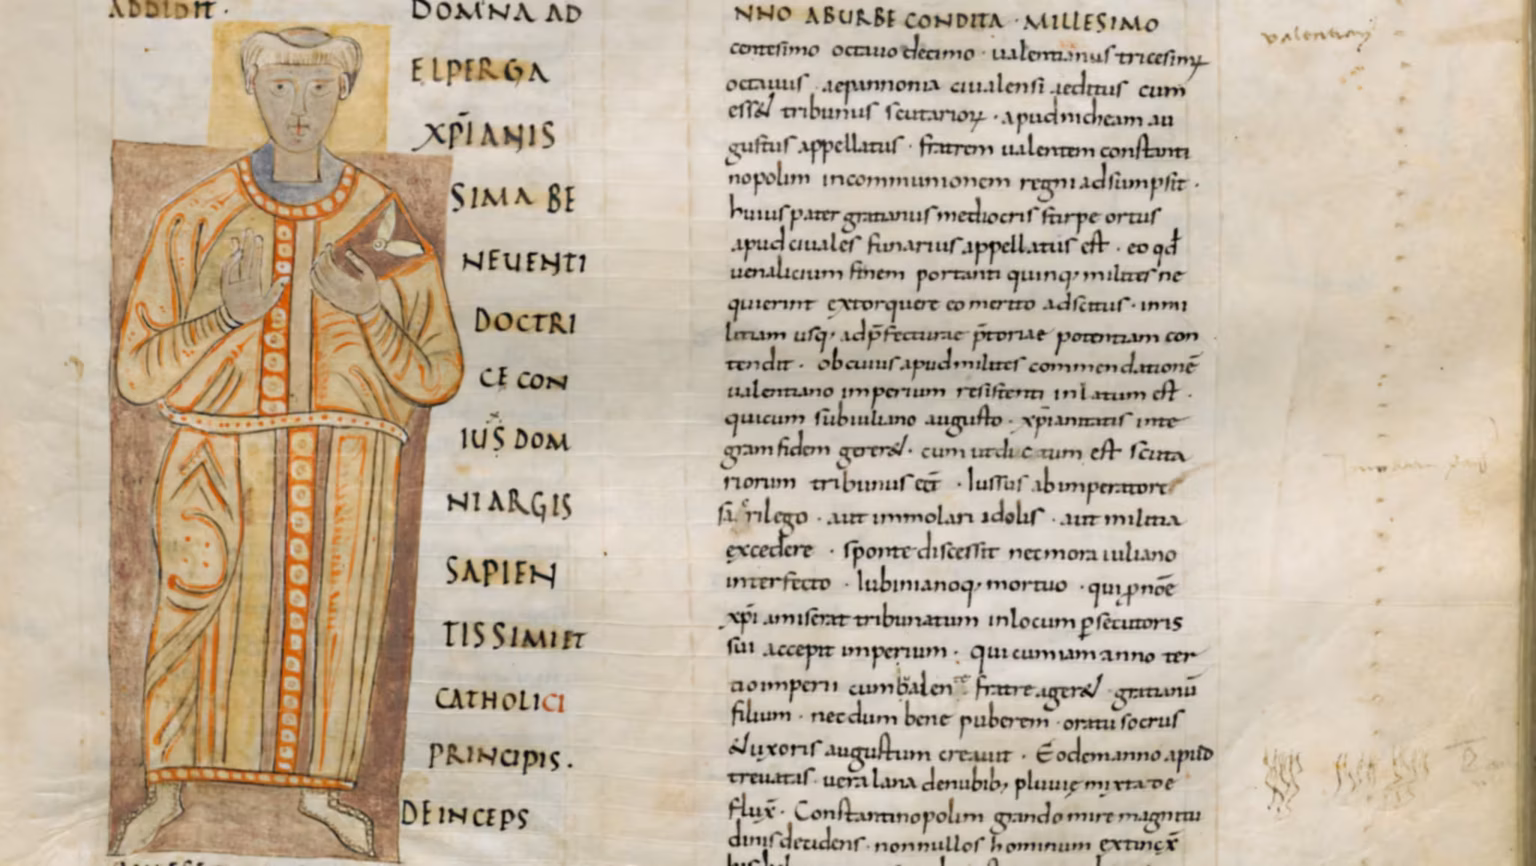 ADDIDIT·
DOMNA AD
ELPERGA
XP̄IANIS
SIMA BE
NEUENTI
DOCTRI
CE CON
IUS DOM
NI ARGIS
SAPIEN
TISSIMI ET
CATHOLICI
PRINCIPIS.
DEINCEPS
NNO AB URBE CONDITA · MILLESIMO
centesimo octauo decimo · ualentianus tricesimꝰ
octauus · aepannonia ciualensi aeditus cum
ess& tribunus scutarioꝝ · apud niceam au
gustus appellatus · fratrem ualentem constanti
nopolim incommunionem regni adsumpsit ·
huius pater gratianus mediocris stirpe ortus
apud ciuales funarius appellatus est · eo qđ
uenalicium finem portanti quinq; milites ne
quierint extorquere eo merito adscitus · inmi
litiam usq; adp̄fecturae p̄toriae potentiam con
tendit · ob cuius apud milites commendationē
ualentiano imperium resistenti inlatum est ·
qui cum sub iuliano augusto · xp̄ianitatis inte
gram fidem gerer& · cum ut dictum est scuta
riorum tribunus eēt · Iussus ab imperatore
sacrilego · aut immolari idolis · aut militia
excedere · sponte discessit nec mora iuliano
interfecto · Iubinianoq; mortuo · qui ꝓ nōe
xp̄i amiserat tribunatum inlocum ꝑsecutoris
sui accepit imperium · qui cum iam anno ter
tio imperii cum balente fratre ager& · gratianū
filium · necdum bene puberem · oratu socrus
&uxoris augustum creauit · Eodem anno apud
trevatas · uera lana denubib; pluuię mixta de
flux̄ · Constantinopolim grando mire magnitu
dinis decidens · nonnullos hominum extinx̄